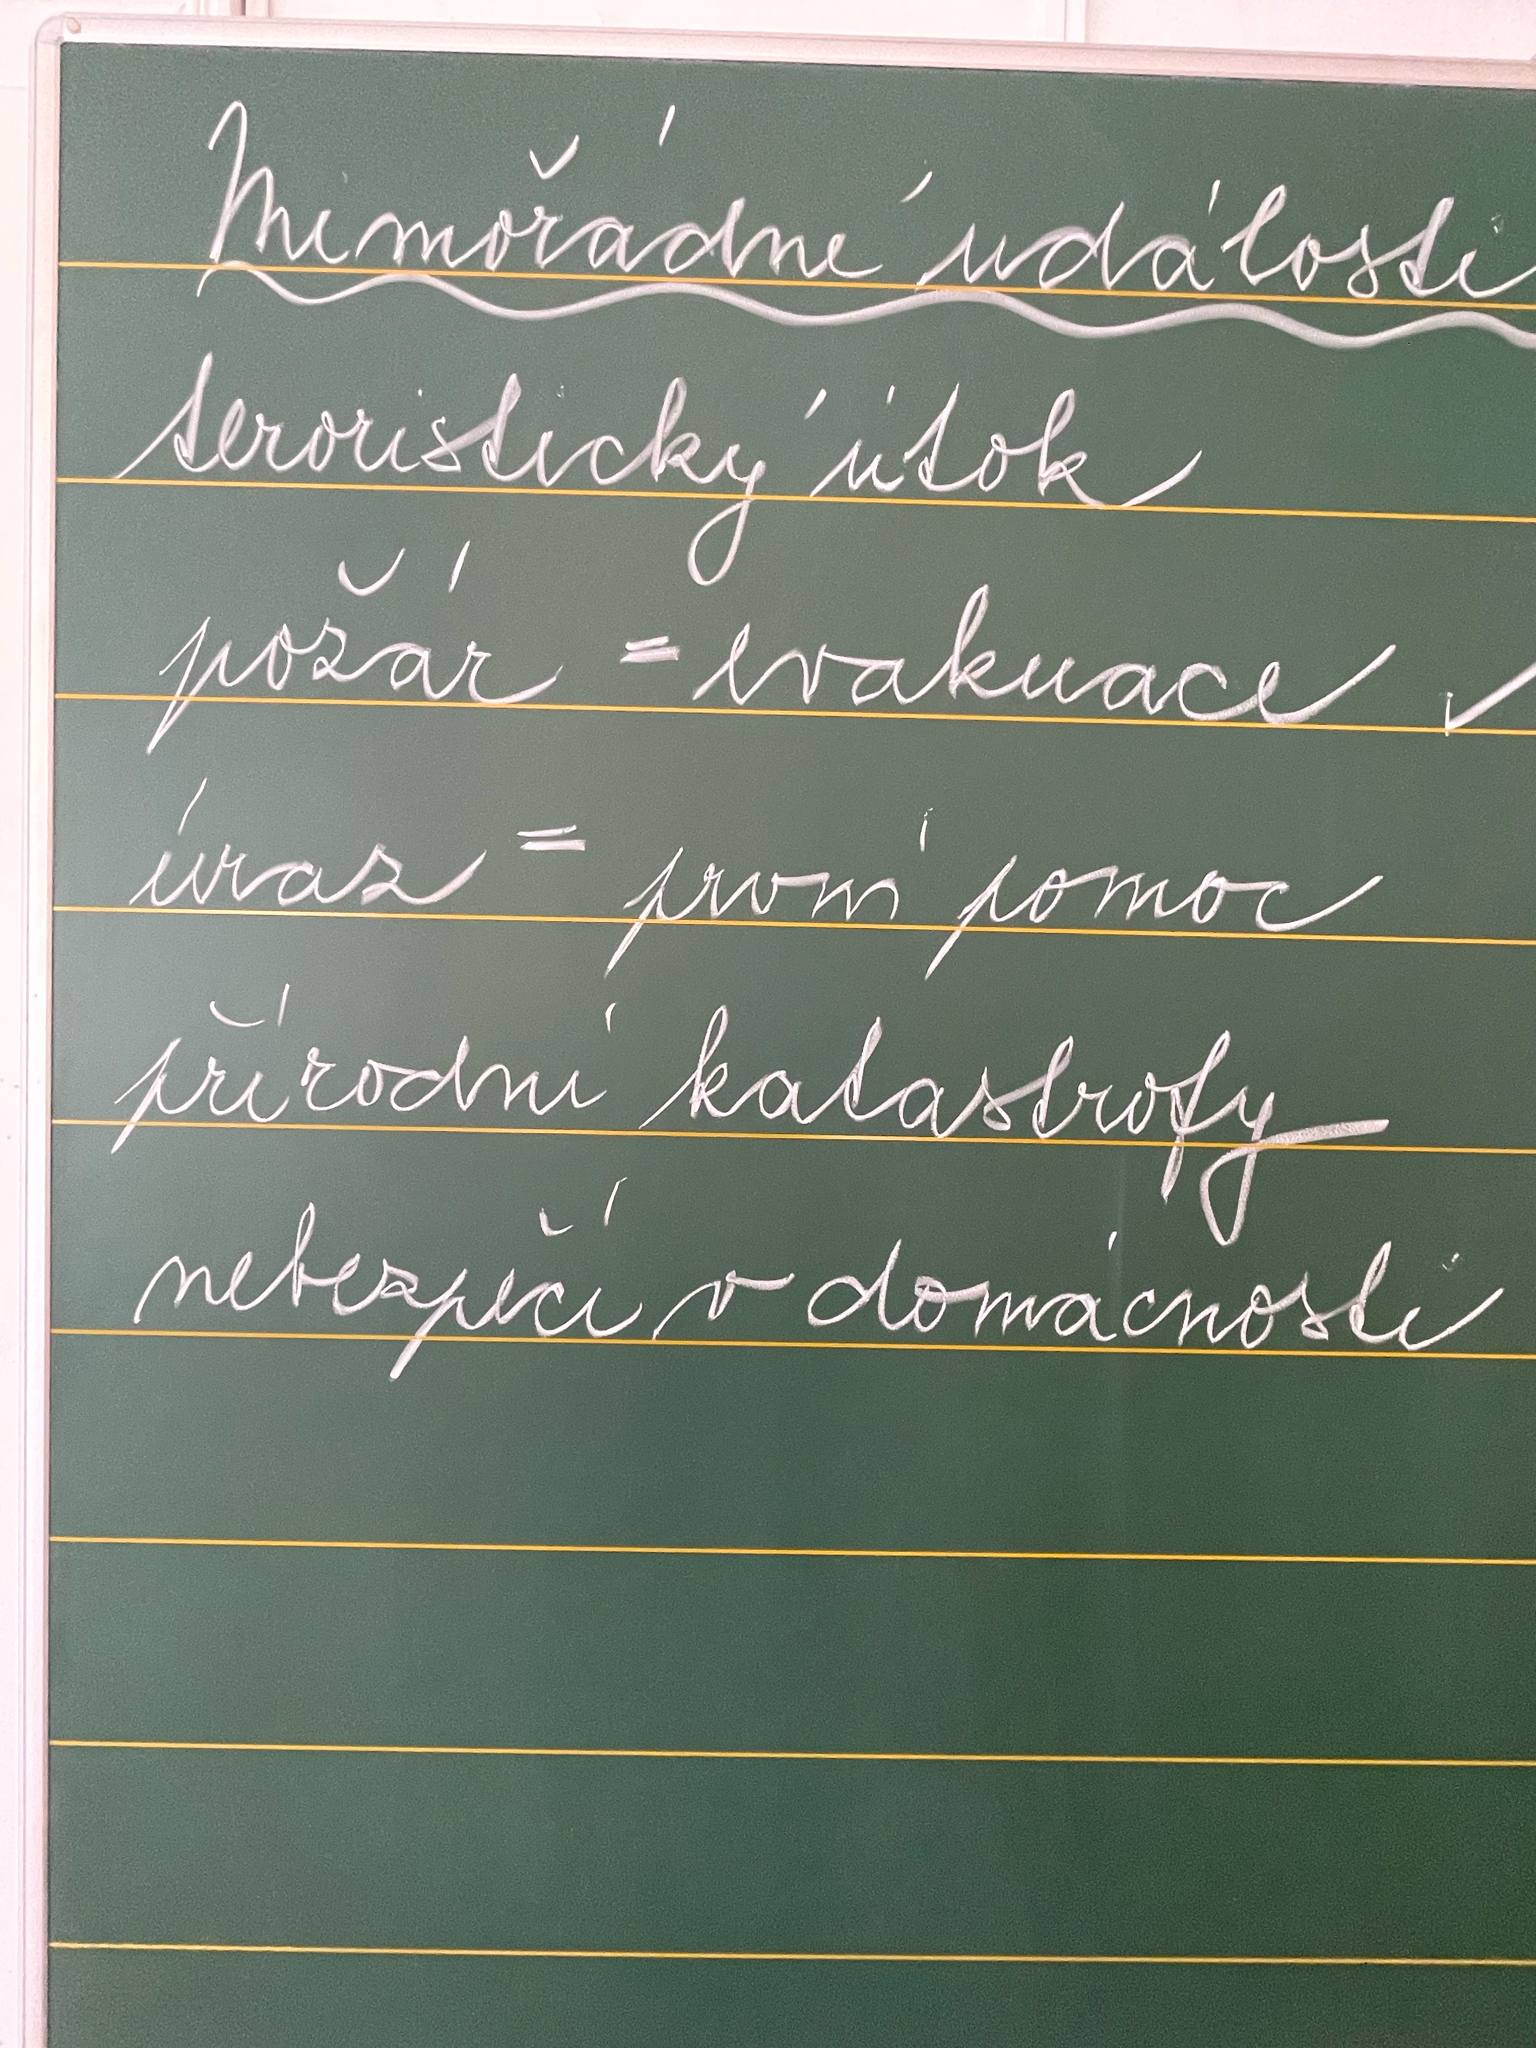 Mimořádné události
teroristický útok
požár = evakuace ✓
úraz = první pomoc
přírodní katastrofy
nebezpečí v domácnosti